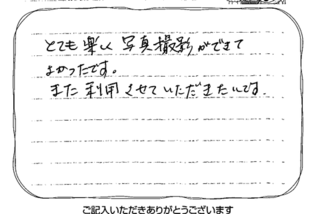 とても楽しく写真撮影ができて
よかったです。
また利用させていただきたいです。
ご記入いただきありがとうございます